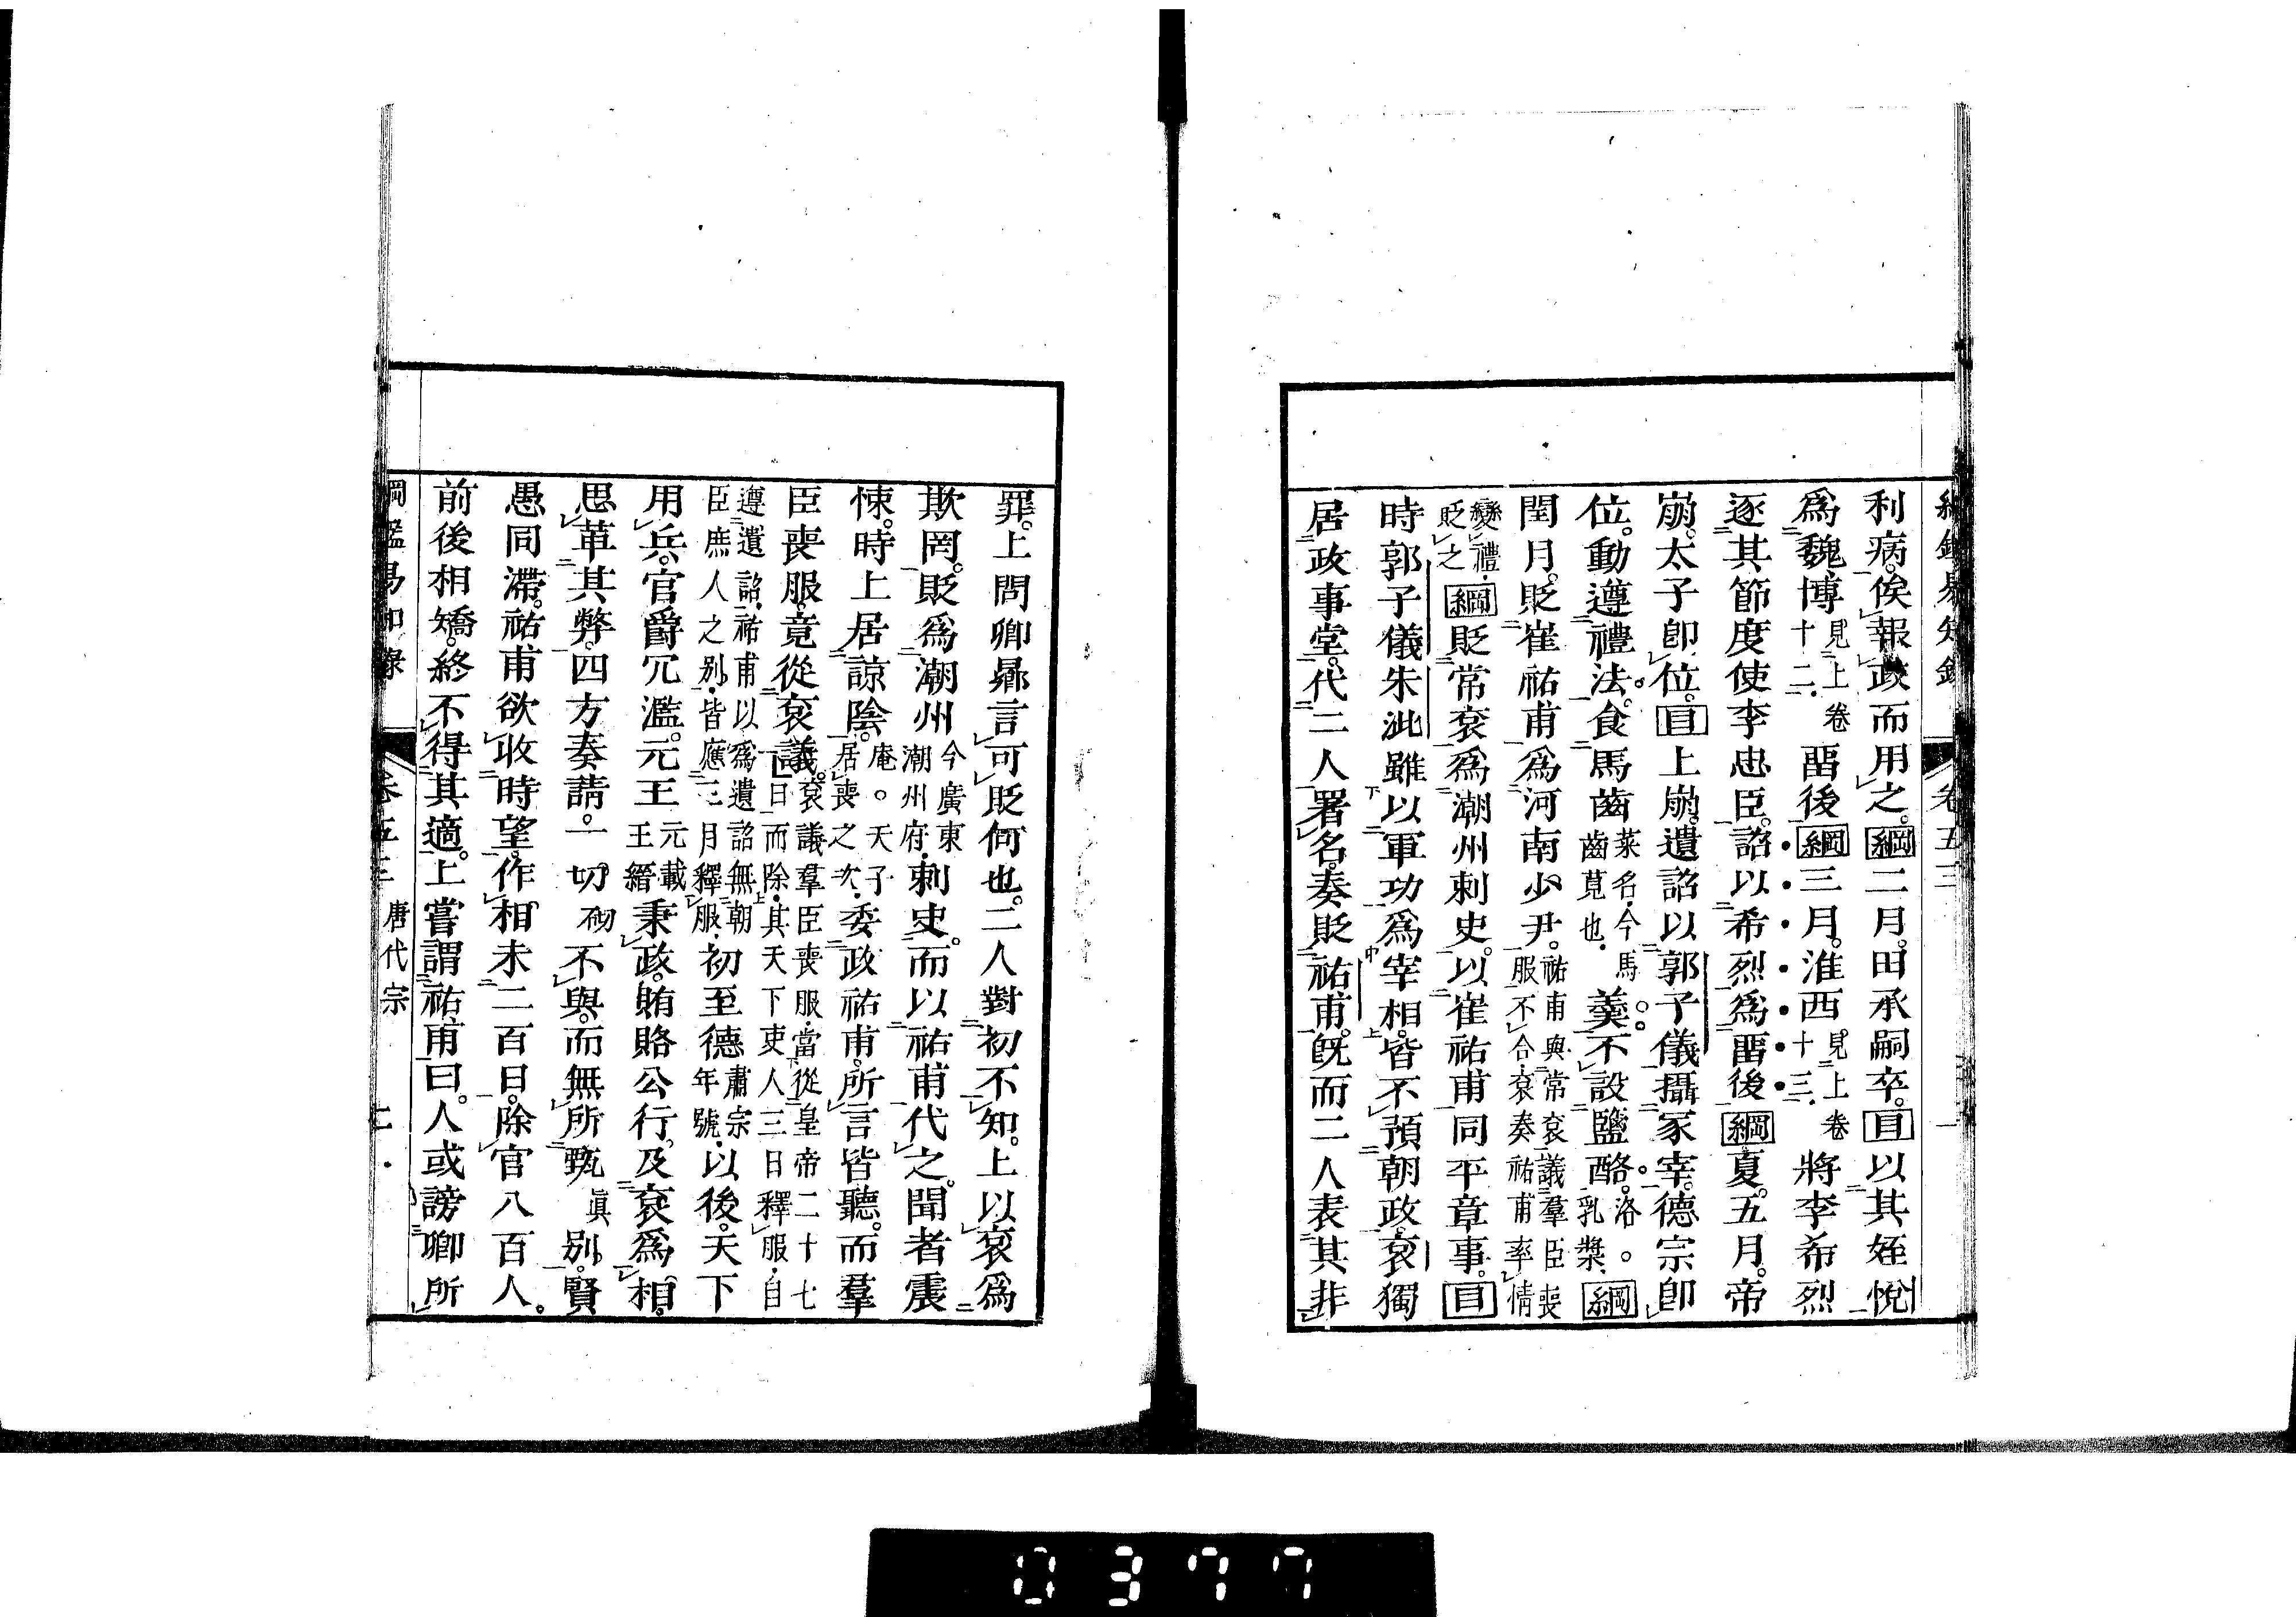 利病。俟報政而用之。綱二月。田承嗣卒。目以其姪悅
爲魏博見上卷十二。畱後綱三月。淮西。見上卷十三。將李希烈
逐其節度使李忠臣。詔以希烈爲畱後綱夏。五月。帝
崩。太子卽位。目上崩。遺詔以郭子儀攝冢宰。德宗卽
位。動遵禮法。食馬齒菜名。今馬齒莧也。羹。不設鹽酪。洛。乳漿。綱
閏月。貶崔祐甫爲河南少尹。祐甫與常袞議羣臣喪服不合。袞奏祐甫率情
變禮。貶之綱貶常袞爲潮州刺史。以崔祐甫同平章事。目
時郭子儀朱泚雖以軍功爲宰相。皆不預朝政。袞獨
居政事堂。代二人署名。奏貶祐甫。旣而二人表其非
罪。上問卿曏言可貶何也。二人對初不知。上以袞爲
欺罔。貶爲潮州今廣東潮州府。刺史。而以祐甫代之。聞者震
悚。時上居諒陰。庵。天子居喪之次。委政祐甫。所言皆聽。而羣
臣喪服。竟從袞議。袞議羣臣喪服。當從皇帝二十七日而除。其天下吏人三日釋服。自
遵遺詔。祐甫以爲遺詔無朝臣庶人之别。皆應三月釋服。初至德肅宗年號。以後。天下
用兵。官爵冗濫。元王元載王縉秉政。賄賂公行。及袞爲相。
思革其弊。四方奏請。一切砌不與。而無所甄眞别。賢
愚同滯。祐甫欲收時望。作相未二百日。除官八百人。
前後相矯。終不得其適。上嘗謂祐甫曰。人或謗卿所
綱鑑易知錄 卷五三 唐代宗
0377